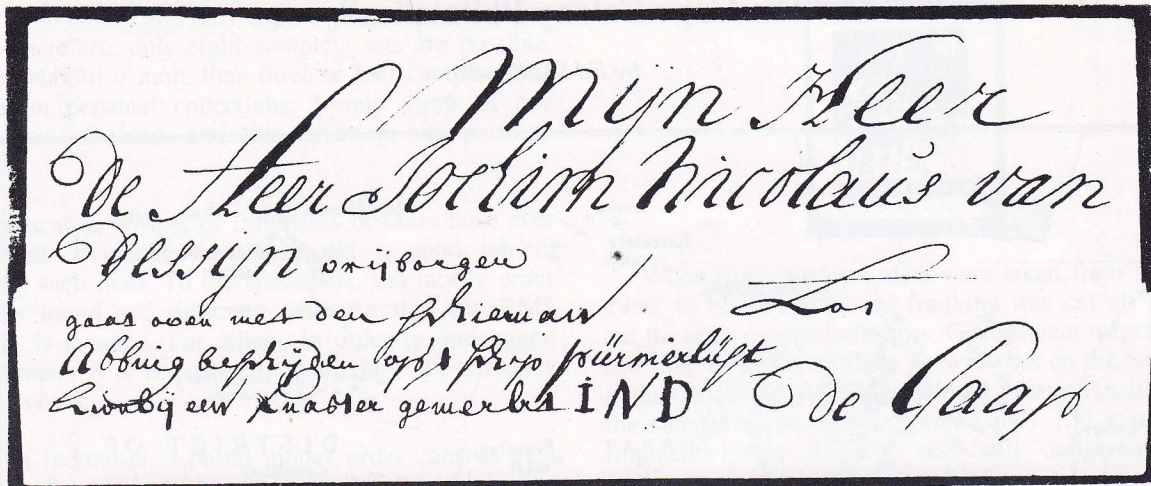 Mijn Heer
De Heer Jochim Nicolaus van
Dessijn vrijborger
gaat over met den Schieman
Abbing beschijden opt schip pürmerlüst
hierbij een knaster gemerkt IND
La
De Caap